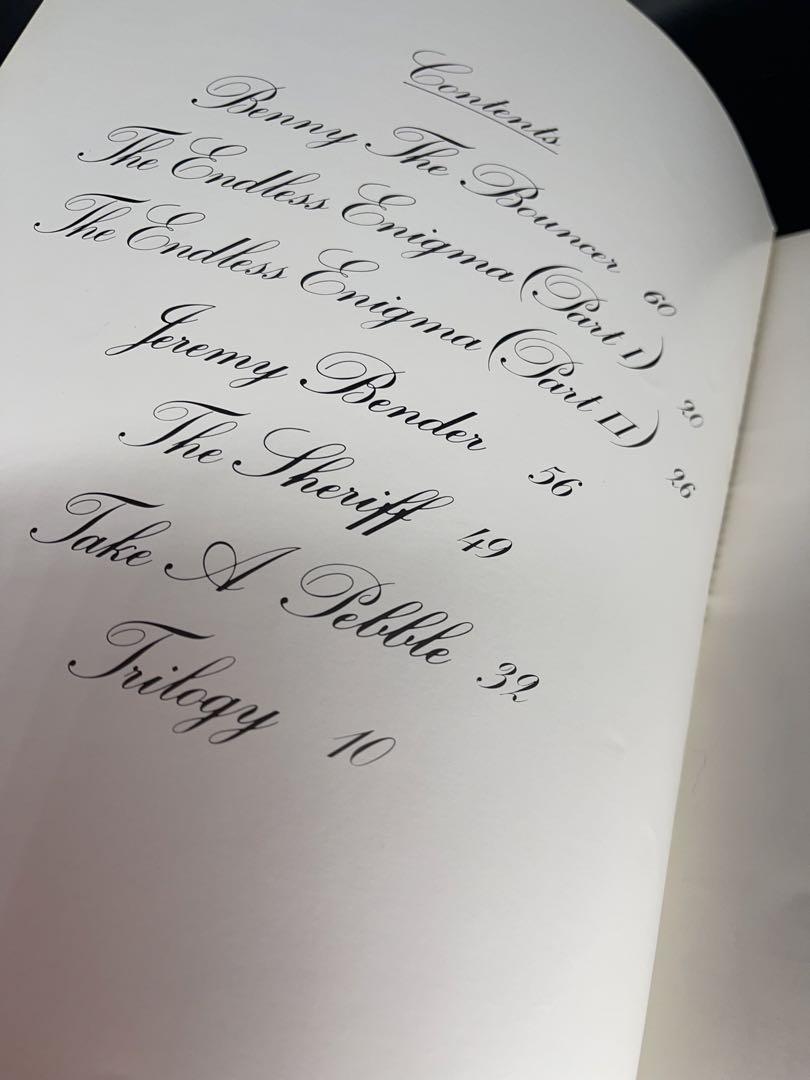 Contents
Benny The Bouncer 60
The Endless Enigma (Part I) 20
The Endless Enigma (Part II) 26
Jeremy Bender 56
The Sheriff 49
Take A Pebble 32
Trilogy 10